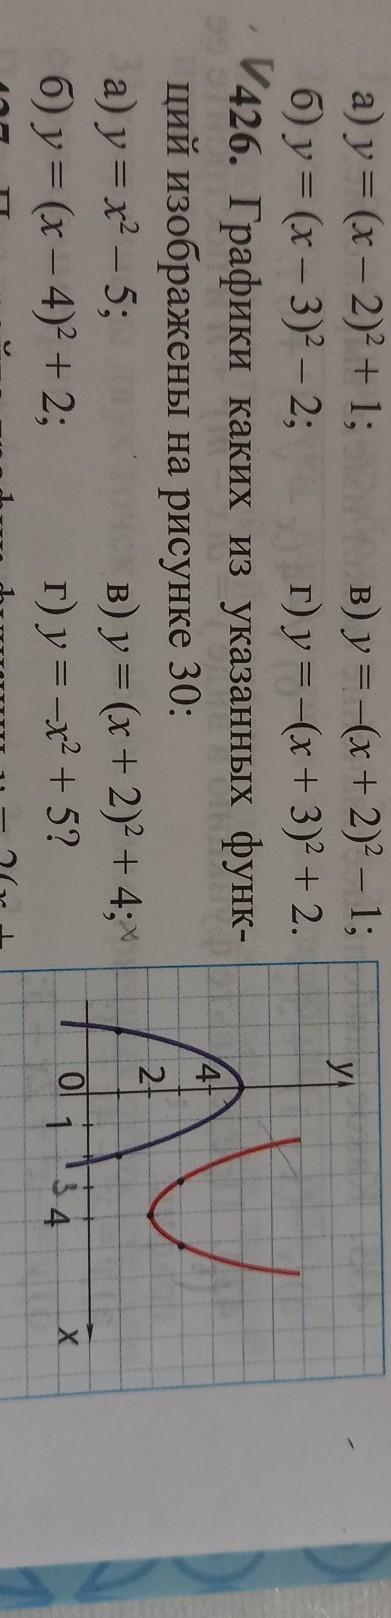 а) y = (x − 2)² + 1; в) y = −(x + 2)² − 1;
б) y = (x − 3)² − 2; г) y = −(x + 3)² + 2.
426. Графики каких из указанных функ-
ций изображены на рисунке 30:
а) y = x² − 5; в) y = (x + 2)² + 4;
б) y = (x − 4)² + 2; г) y = −x² + 5?
y
4
2
0 1 3 4 x